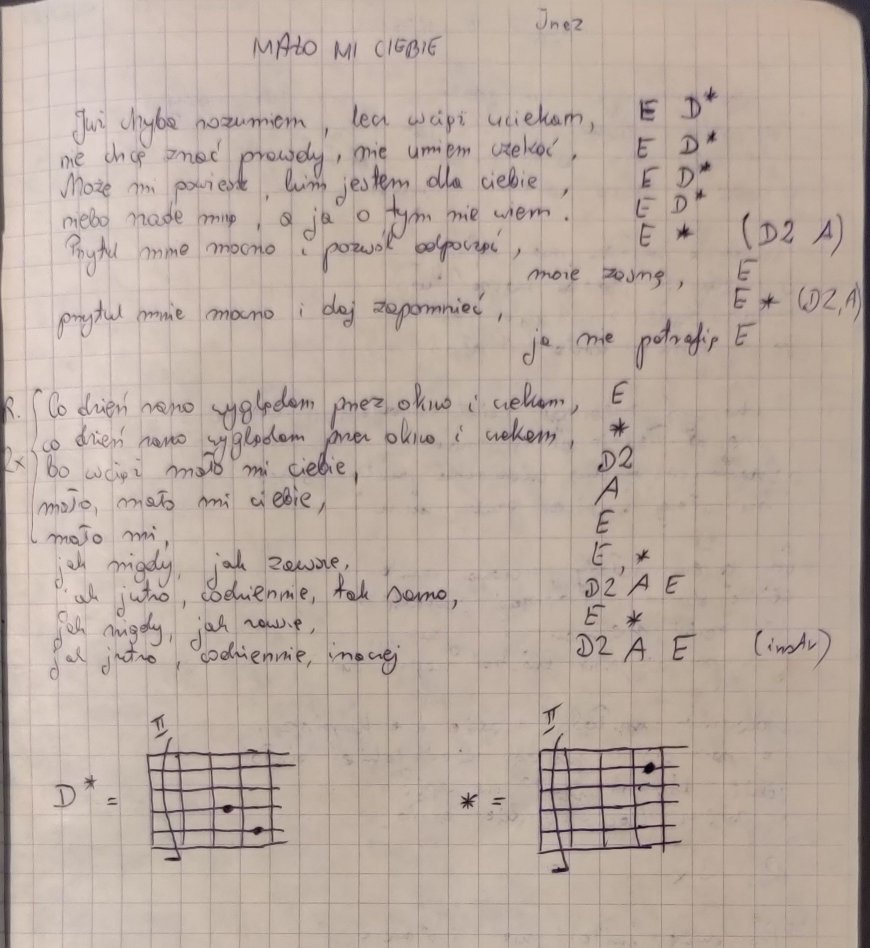 Inez
MAŁO MI CIEBIE
Już chyba rozumiem, lecz wciąż uciekam, E D*
nie chcę znać prawdy, nie umiem czekać, E D*
Może mi powiesz, kim jestem dla ciebie, E D*
niebo nade mną, a ja o tym nie wiem. E D*
Przytul mnie mocno i pozwól odpocząć, E * (D2 A)
może zasnę, E
przytul mnie mocno i daj zapomnieć, E * (D2, A)
ja nie potrafię E
R. Co dzień rano wyglądam przez okno i czekam, E
2x co dzień rano wyglądam przez okno i czekam, *
bo wciąż mało mi ciebie, D2
mało, mało mi ciebie, A
mało mi, E
jak nigdy, jak zawsze, E, *
jak jutro, codziennie, tak samo, D2 A E
jak nigdy, jak zawsze, E *
jak jutro, codziennie, inaczej D2 A E (instr)
II II
D* = * =